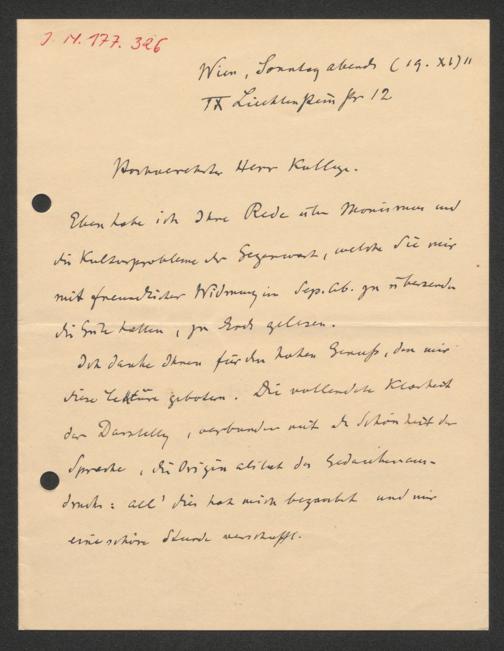 J. N. 177. 326
Wien, Sonntag abends (19. XI) 11
IX Liechtensteinstr 12
Hochverehrter Herr Kollege.
Eben habe ich Ihre Rede über Monismus und
die Kulturprobleme der Gegenwart, welche Sie mir
mit freundlicher Widmung in Sep. Ab. zu übersenden
die Güte hatten, zu Ende gelesen.
Ich danke Ihnen für den hohen Genuß, den mir
diese Lektüre geboten. Die vollendete Klarheit
der Darstellg, verbunden mit der Schönheit der
Sprache, die Originalität des Gedankenaus-
drucks: all' dies hat mich bezaubert und mir
eine schöne Stunde verschafft.